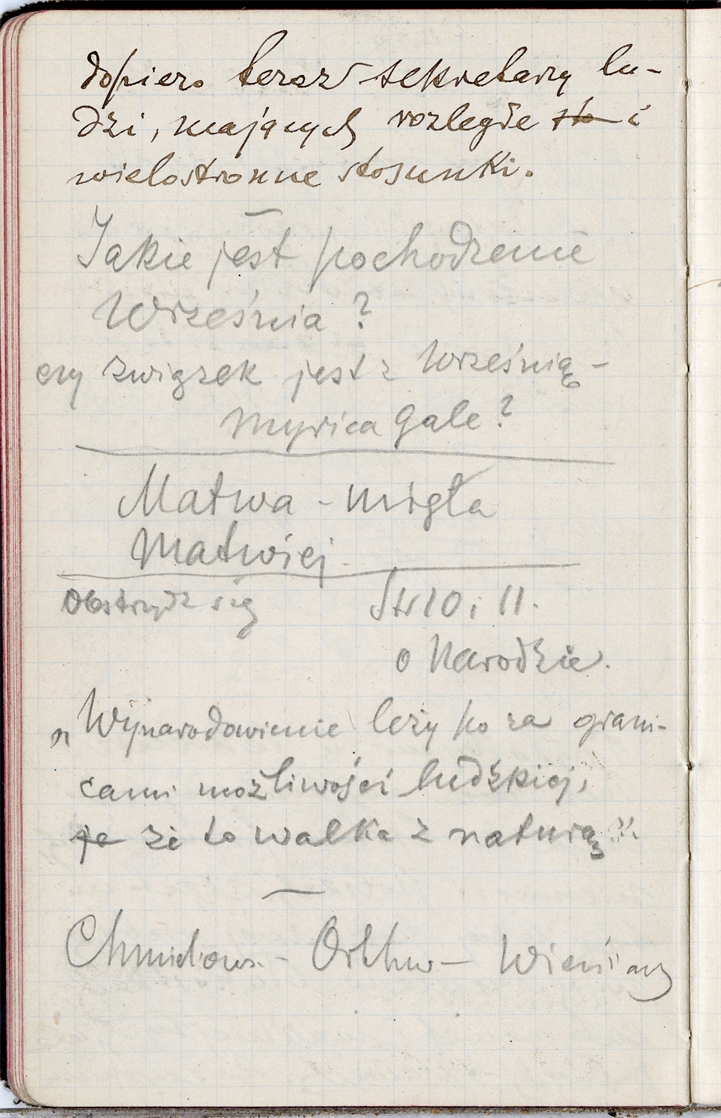 dopiero teraz sekretarzy lu-
dzi, mających rozległe sto i
wielostronne stosunki.
Jakie jest pochodzenie
Września?
czy związek jest z Wrześnią -
Myrica Gale?
Matwa - migła
Matwiej.
Obstrydz się
Str 10 i 11.
o Narodzie.
"Wynarodowienie leży po za grani-
cami możliwości ludzkiej,
je że to walka z naturą".